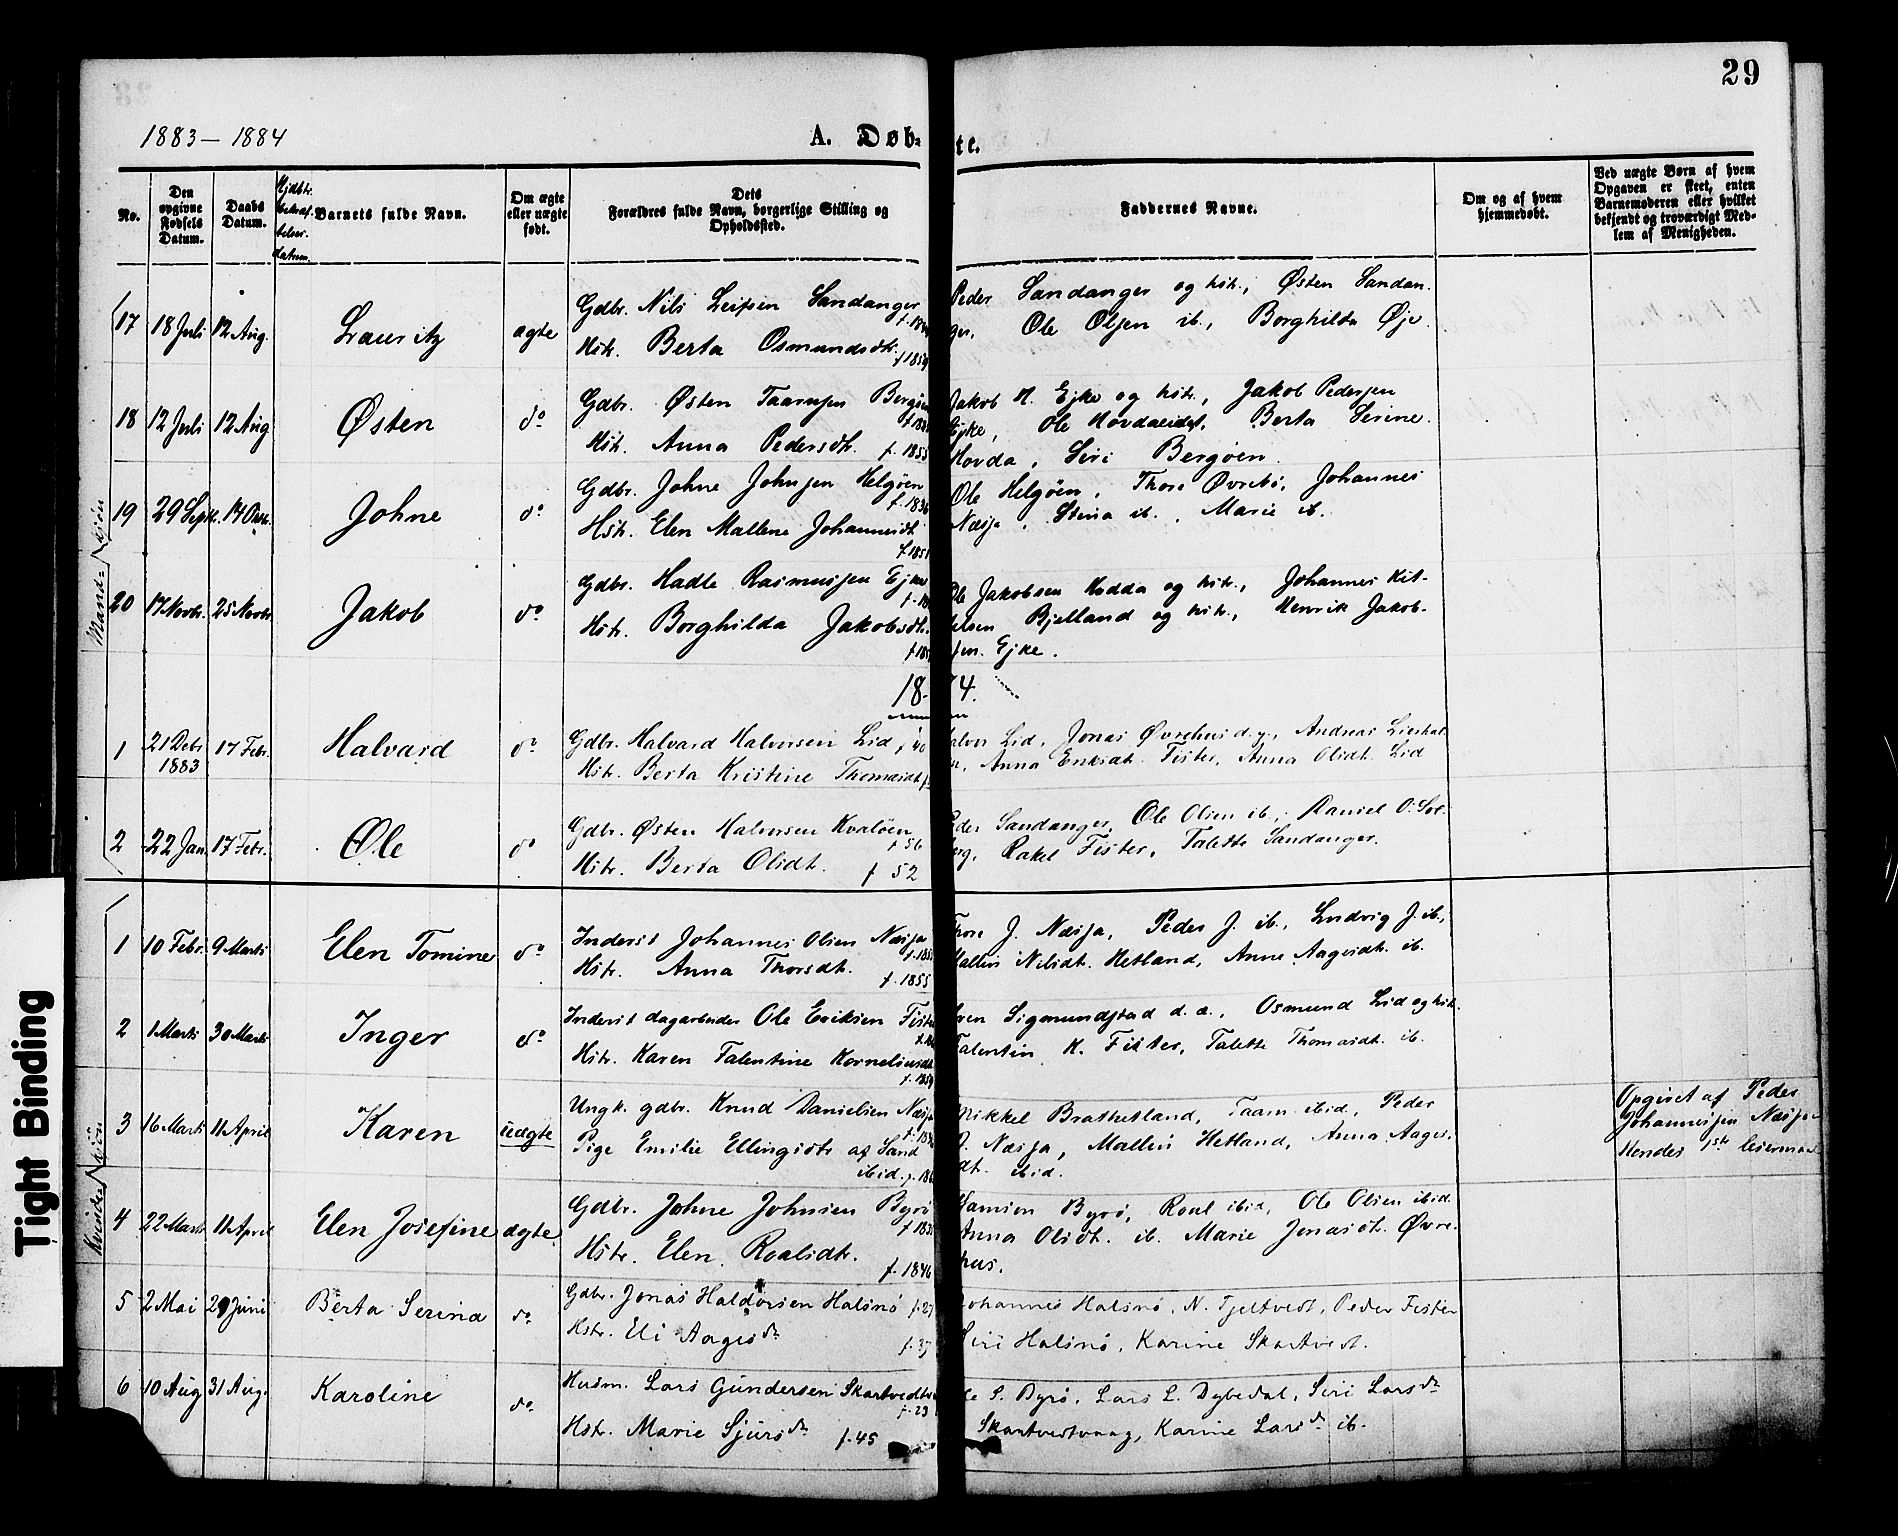 29
1883 – 1884
A. Døb-
te.
No.
Den opgivne Fødsels Datum.
Daabs Datum.
Barnets fulde Navn.
Om ægte eller uægte født.
Dets
Forældres fulde Navn, borgerlige Stilling og
Opholdssted.
Faddernes Navne.
Om og af hvem hjemmedøbt.
Ved uægte Børn af hvem
Opgaven er skeet, enten
Barnemoderen eller hvilket
bekjendt og troværdigt Med-
lem af Menigheden.
17 18 Juli 12 Aug. Lauritz ægte
Gdbr. Nils Leifsen Sandanger
Hstr. Berta Osmundsdtr. f 1859
Peder Sandanger og hstr., Østen Sandan-
ger, Ole Olsen ib., Borghilda Øje
18 12 Juli 12 Aug Østen do
Gdbr. Østen Taarnsen Bergøen
Hstr. Anna Pedersdtr. f. 1855
Jakob H. Ejke og hstr., Jakob Pedersen
Ejke, Ole Hovdaeidet, Berta Serine
Hovda, Siri Bergøen
19 29 Septr. Johne do
Gdbr. Johne Johnsen Helgøen f. 1836
Hstr. Elen Mallene Johannesdtr f. 1851
Ole Helgøen, Thore Øvrebø, Johannes
Næsja, Stina ib., Marie ib.
20 17 Novbr. 25 Novbr. Jakob do
Gdbr. Hadle Rasmussen Ejke
Hstr. Borghilda Jakobsdtr.
Ole Jakobsen Hodda og hstr., Johannes Kit-
telsen Bjelland og hstr., Henrik Jakob-
sen Ejke.
Mand-kjön
18 4.
1 21 Debr 1883 17 Febr. Halvard do
Gdbr. Halvard Halvorsen Lid f 40
Hstr. Berta Kristine Thomasdtr
Halvor Lid, Jonas Øvrehus d.y., Andreas
Anna Eriksdtr. Fister, Anna Olidtr. Lid
2 22 Jan. 17 Febr. Ole do
Gdbr. Østen Halvorsen Kvaløen f 56
Hstr. Berta Olidtr. f 52
Peder Sandanger, Ole Olsen ib., Daniel O. Sol-
berg, Rakel Fister, Talette Sandanger.
1 10 Febr. 9 Marts Elen Tomine do
Inderst Johannes Olsen Næsja
Hstr. Anna Thorsdtr. f. 1855
Thore J. Næsja, Peder J. ib., Ludvig J. ib.,
Malleri Nilsdtr. Hetland, Anne Aagesdtr. ib.
2 1 Marts 30 Marts Inger do
Inderst dagarbeider Ole Eriksen Fister
Hstr. Karen Talentine Korneliusdtr f. 1859
Sigmundstad d. æ., Osmund Lid og hstr.
Talentin K. Fister, Talette Thomasdtr. ib.
3 16 Marts 14 April Karen uægte
Ungk. gdbr. Knud Danielsen Næsja
Pige Emilie Ellingsdtr af Sand
ibid.
Mikkel Brathetland, Taarn ibid., Peder
J. Næsja, Malleri Hetland, Anna Aages-
dtr. ibid.
Opgivet af Peder
Johannesen Næsja
Hendes 1ste leiermaal
4 22 Marts 14 April Elen Josefine ægte
Gdbr. Johne Johnsen Byrø
Hstr. Elen Roalsdtr. f. 1846
Samson Byrø, Roal ibid, Ole Olsen ibid.
Anna Olsdtr. ib. Marie Jonasdtr. Øvre-
hus.
Kvindekjön
5 2 Mai Juni Berta Serina do.
Gdbr. Jonas Haldorsen Halsnø f. 27
Hstr. Eli Aagesdr f. 37
Johannes Halsnø, N. Tjeltvedt, Peder Fister
Siri Halsnø, Karine Skartvedt.
6 10 Aug 31 Aug. Karoline do.
Husm. Lars Gundersen Skartvedt f. 23
Hstr. Marie Sjursdr f. 45
Ole S. Byrø, Lars L. Dybedal, Siri Larsdr
Skartvedtvaag, Karine Larsdr ib.
Tight Binding